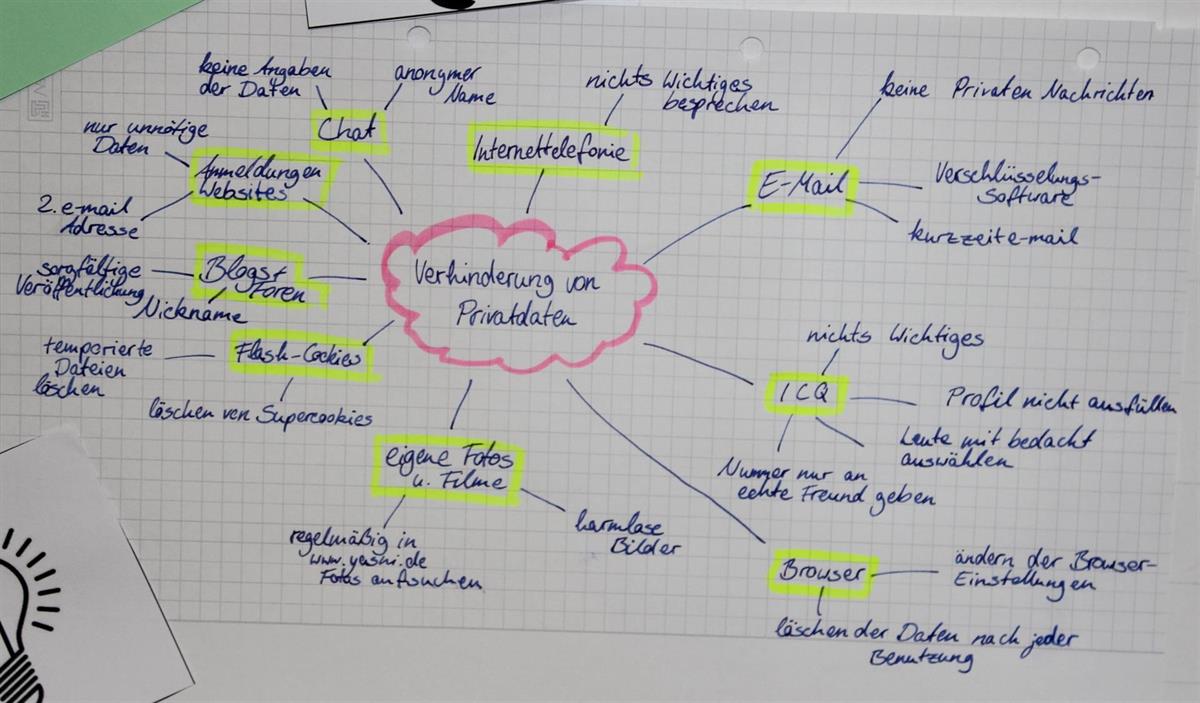 keine Angaben
der Daten
anonymer
Name
Chat
nichts Wichtiges
besprechen
Internettelefonie
keine Privaten Nachrichten
E-Mail
Verschlüsselungs-
Software
kurzzeite-mail
nur unnötige
Daten
Anmeldungen
Websites
2. e-mail
Adresse
sorgfältige
Veröffentlichung
Blogs+
Foren
Nickname
Verhinderung von
Privatdaten
temporierte
Dateien
löschen
Flash-Cookies
löschen von Supercookies
nichts Wichtiges
ICQ
Profil nicht ausfüllen
Leute mit bedacht
auswählen
Nummer nur an
echte Freund geben
eigene Fotos
u. Filme
regelmäßig in
www.yasni.de
Fotos aufsuchen
harmlose
Bilder
Browser
ändern der Browser-
Einstellungen
löschen der Daten nach jeder
Benutzung